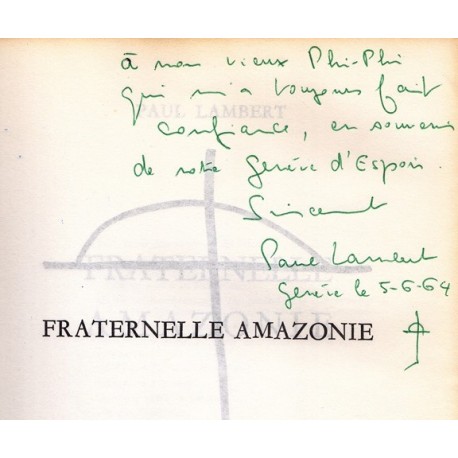 à mon vieux Phi-Phi
qui m'a toujours fait
PAUL LAMBERT
confiance, en souvenir
de notre Genève d'Espoir.
Sincerement
Paul Lambert
Genève le 5-6-64
FRATERNELLE
AMAZONIE
FRATERNELLE AMAZONIE